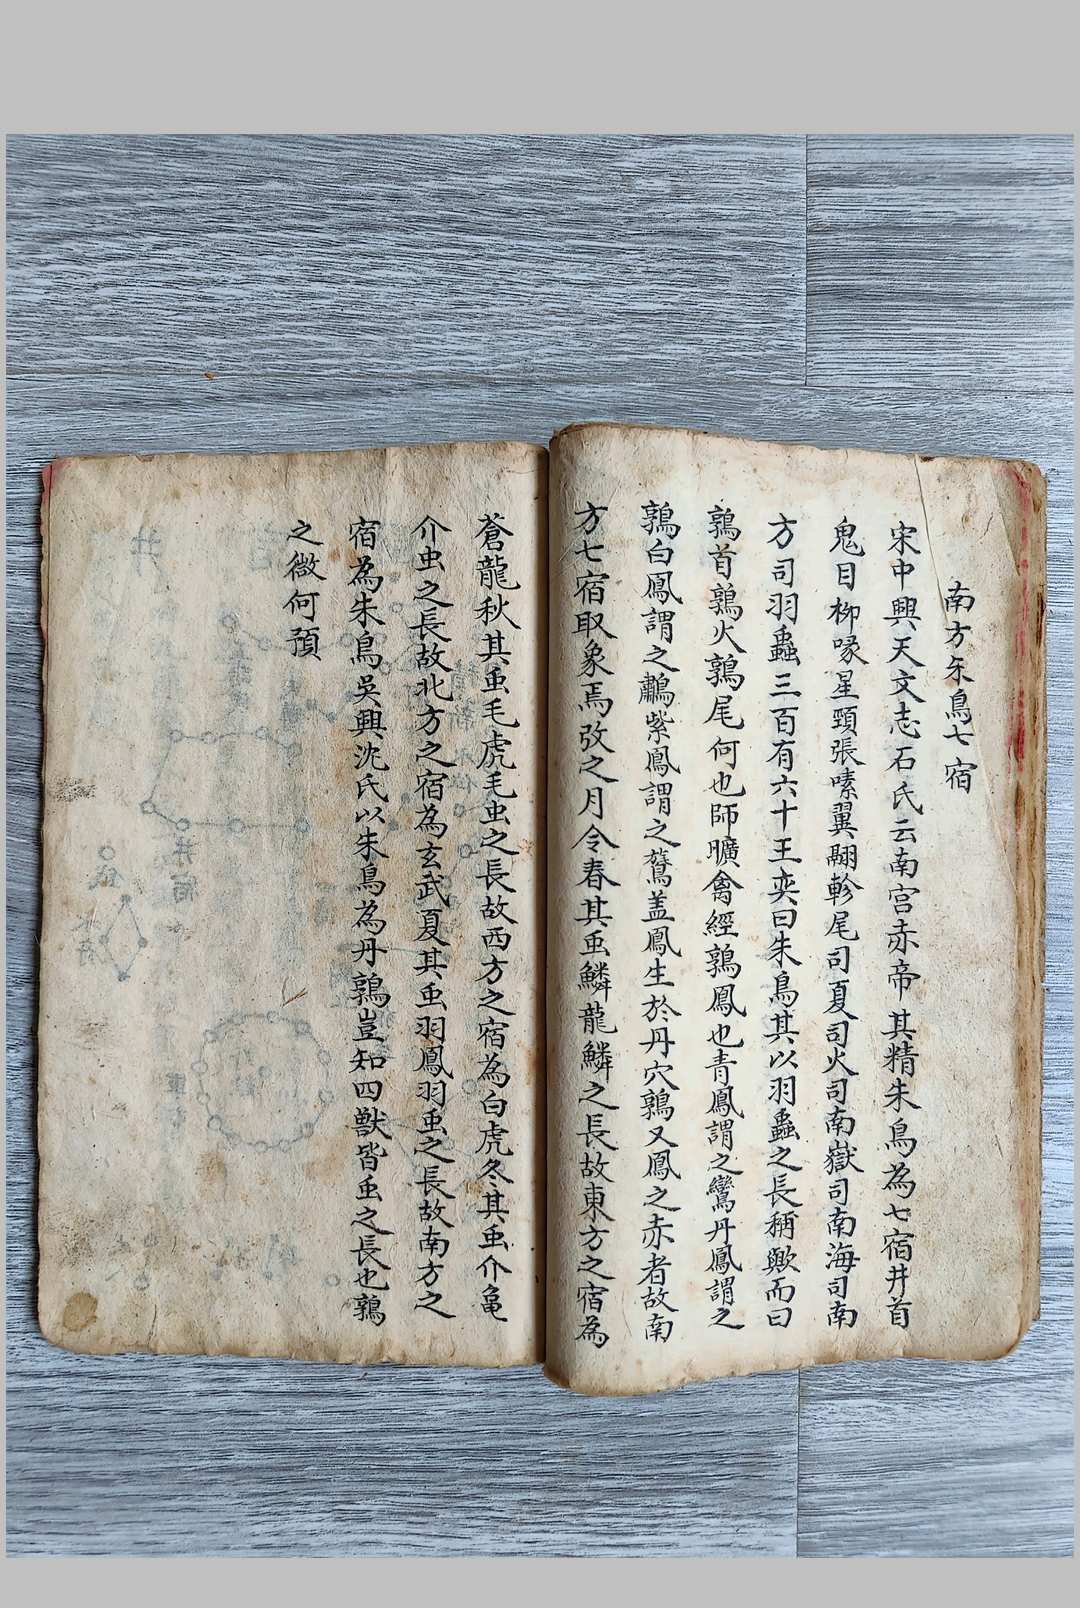 南方朱鳥七宿
宋中興天文志石氏云南宫赤帝其精朱鳥為七宿井首
鬼目柳喙星頸張嗉翼翮軫尾司夏司火司南嶽司南海司南
方司羽蟲三百有六十王奕曰朱鳥其以羽蟲之長稱歟而曰
鶉首鶉火鶉尾何也師曠禽經鶉鳳也青鳳謂之鸞丹鳳謂之
鶉白鳳謂之鷫紫鳳謂之鷟盖鳳生於丹穴鶉又鳳之赤者故南
方七宿取象焉攷之月令春其虫鱗龍鱗之長故東方之宿為
蒼龍秋其虫毛虎毛虫之長故西方之宿為白虎冬其虫介龜
介虫之長故北方之宿為玄武夏其虫羽鳳羽虫之長故南方之
宿為朱鳥吳興沈氏以朱鳥為丹鶉豈知四獸皆虫之長也鶉
之微何預
井宿